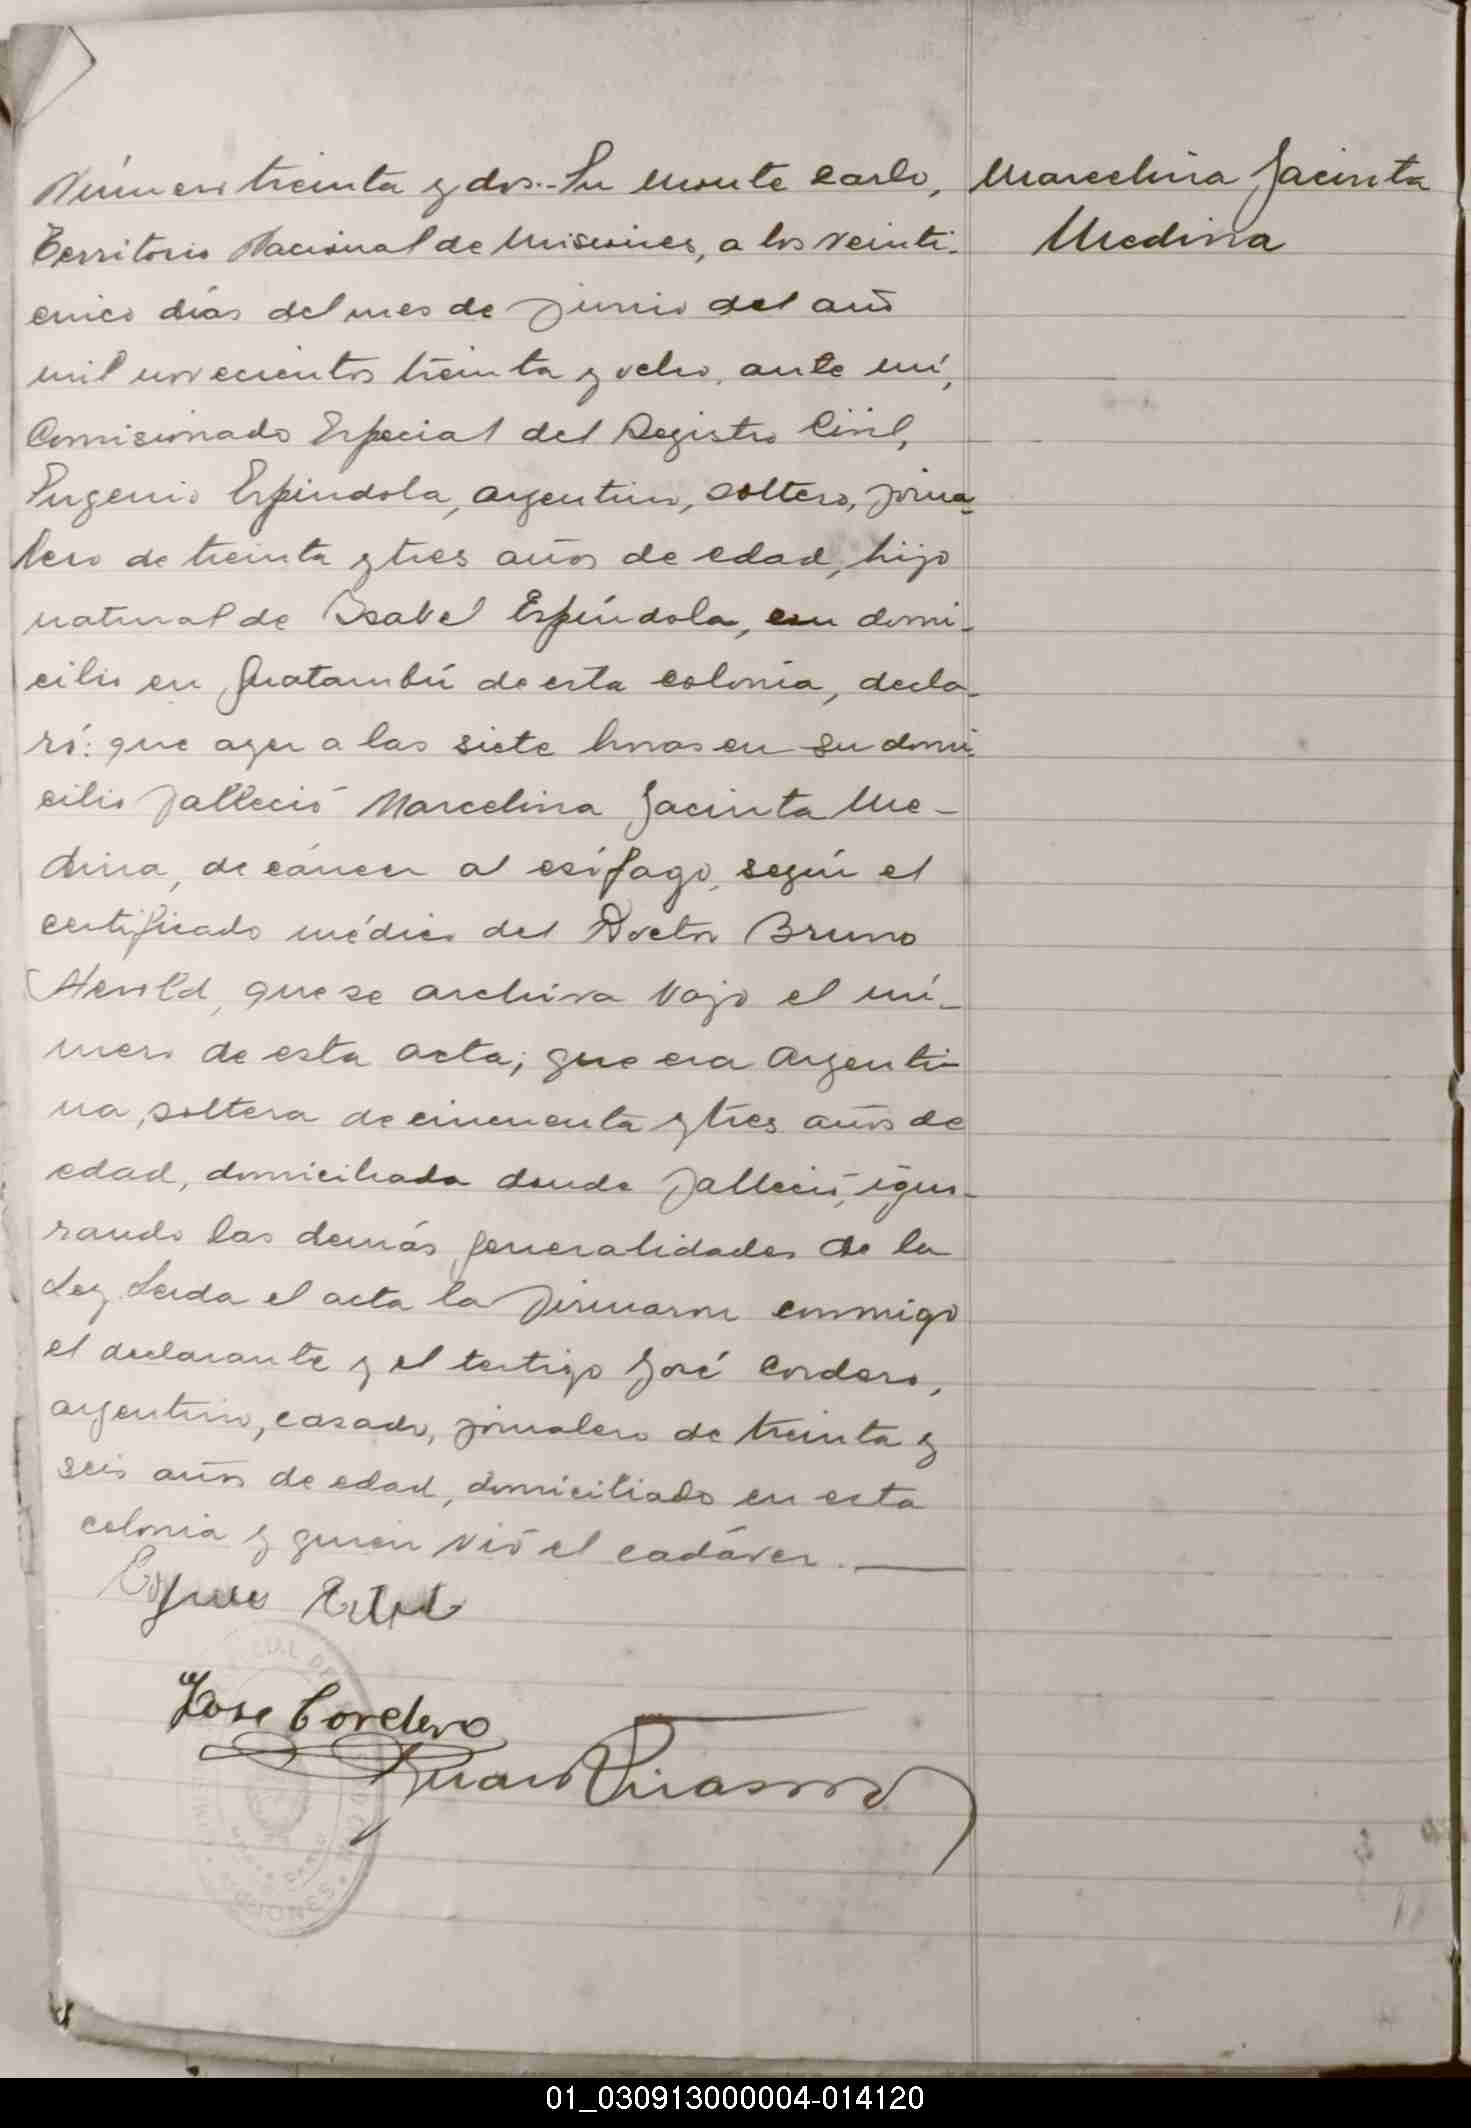 Número treinta y dos.- En Monte Carlo,
Territorio Nacional de Misiones, a los veinti-
cinco días del mes de junio del año
mil novecientos treinta y ocho, ante mí,
Comisionado Especial del Registro Civil,
Eugenio Espíndola, argentino, soltero, jorna-
lero de treinta y tres años de edad, hijo
natural de Isabel Espíndola, con domi-
cilio en Guatambú de esta colonia, decla-
ró: que ayer a las siete horas en su domi-
cilio falleció Marcelina Jacinta Me-
dina, de cáncer al esófago, según el
certificado médico del Doctor Bruno
Herold, que se archiva vajo el nú-
mero de esta acta; que era argenti-
na, soltera de cincuenta y tres años de
edad, domiciliada donde falleció, igno-
rando las demás generalidades de la
Ley. Leida el acta la firmaron conmigo
el declarante y el testigo José Cordero,
argentino, casado, jornalero de treinta y
seis años de edad, domiciliado en esta
colonia y quien vió el cadáver.
Marcelina Jacinta
Medina
Jose Cordero
MISIONES
01_030913000004-014120